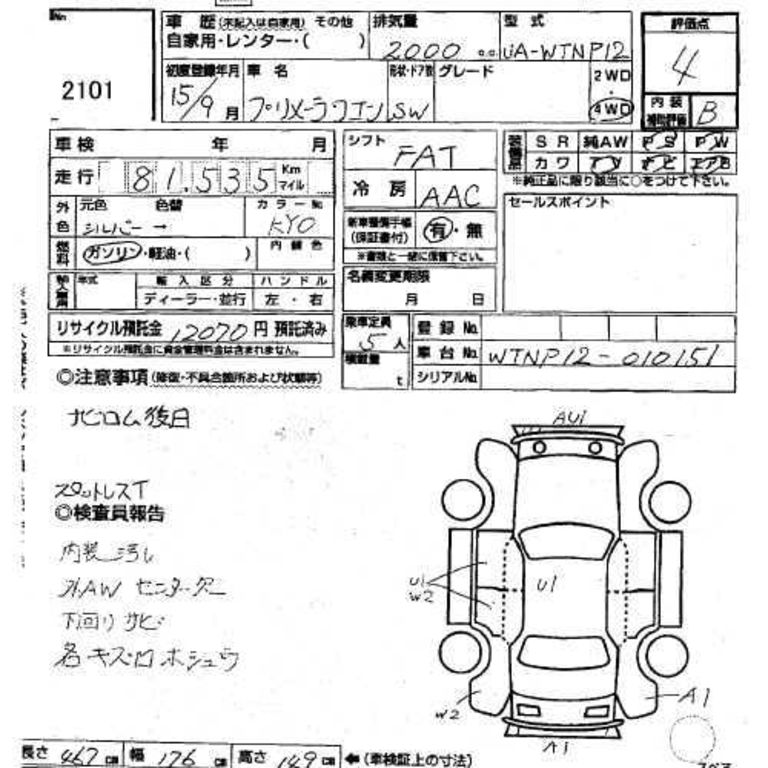 No.
2101
車歴 (未記入は自家用) その他
自家用・レンター・( )
排気量
2000 c.c.
型式
UA-WTNP12
評価点
4
初度登録年月
15/9月
車名
プリメーラワゴン
形状・ドア数
SW
グレード
2WD
4WD
内装
補助評価
B
車検 年 月
シフト
FAT
装備品
SR 純AW PS PW
カワ TV ナビ エアB
※純正品に限り該当に○をつけて下さい。
走行 81,535 Km マイル
冷房 AAC
セールスポイント
外色
元色 色替
シルバー →
カラーNo.
KY0
新車整備手帳
(保証書付)
有・無
※書類と一緒に保管下さい。
燃料
ガソリン・軽油・( )
内装色
名義変更期限
月 日
輸入車用
年式
輸入区分
ディーラー・並行
ハンドル
左・右
リサイクル預託金 12070 円 預託済み
※リサイクル預託金に資金管理料金は含まれません。
乗車定員
5人
積載量
t
登録No.
車台No. WTNP12-010151
シリアルNo.
◎注意事項 (修復・不具合箇所および状態等)
ナビロム後日
スタットレスT
◎検査員報告
内装汚れ
外AW センター欠
下回りサビ
各キズ凹ホシュウ
AU1
U1
W2
U1
W2
A1
A1
長さ 467 cm 幅 176 cm 高さ 149 cm ←(車検証上の寸法)